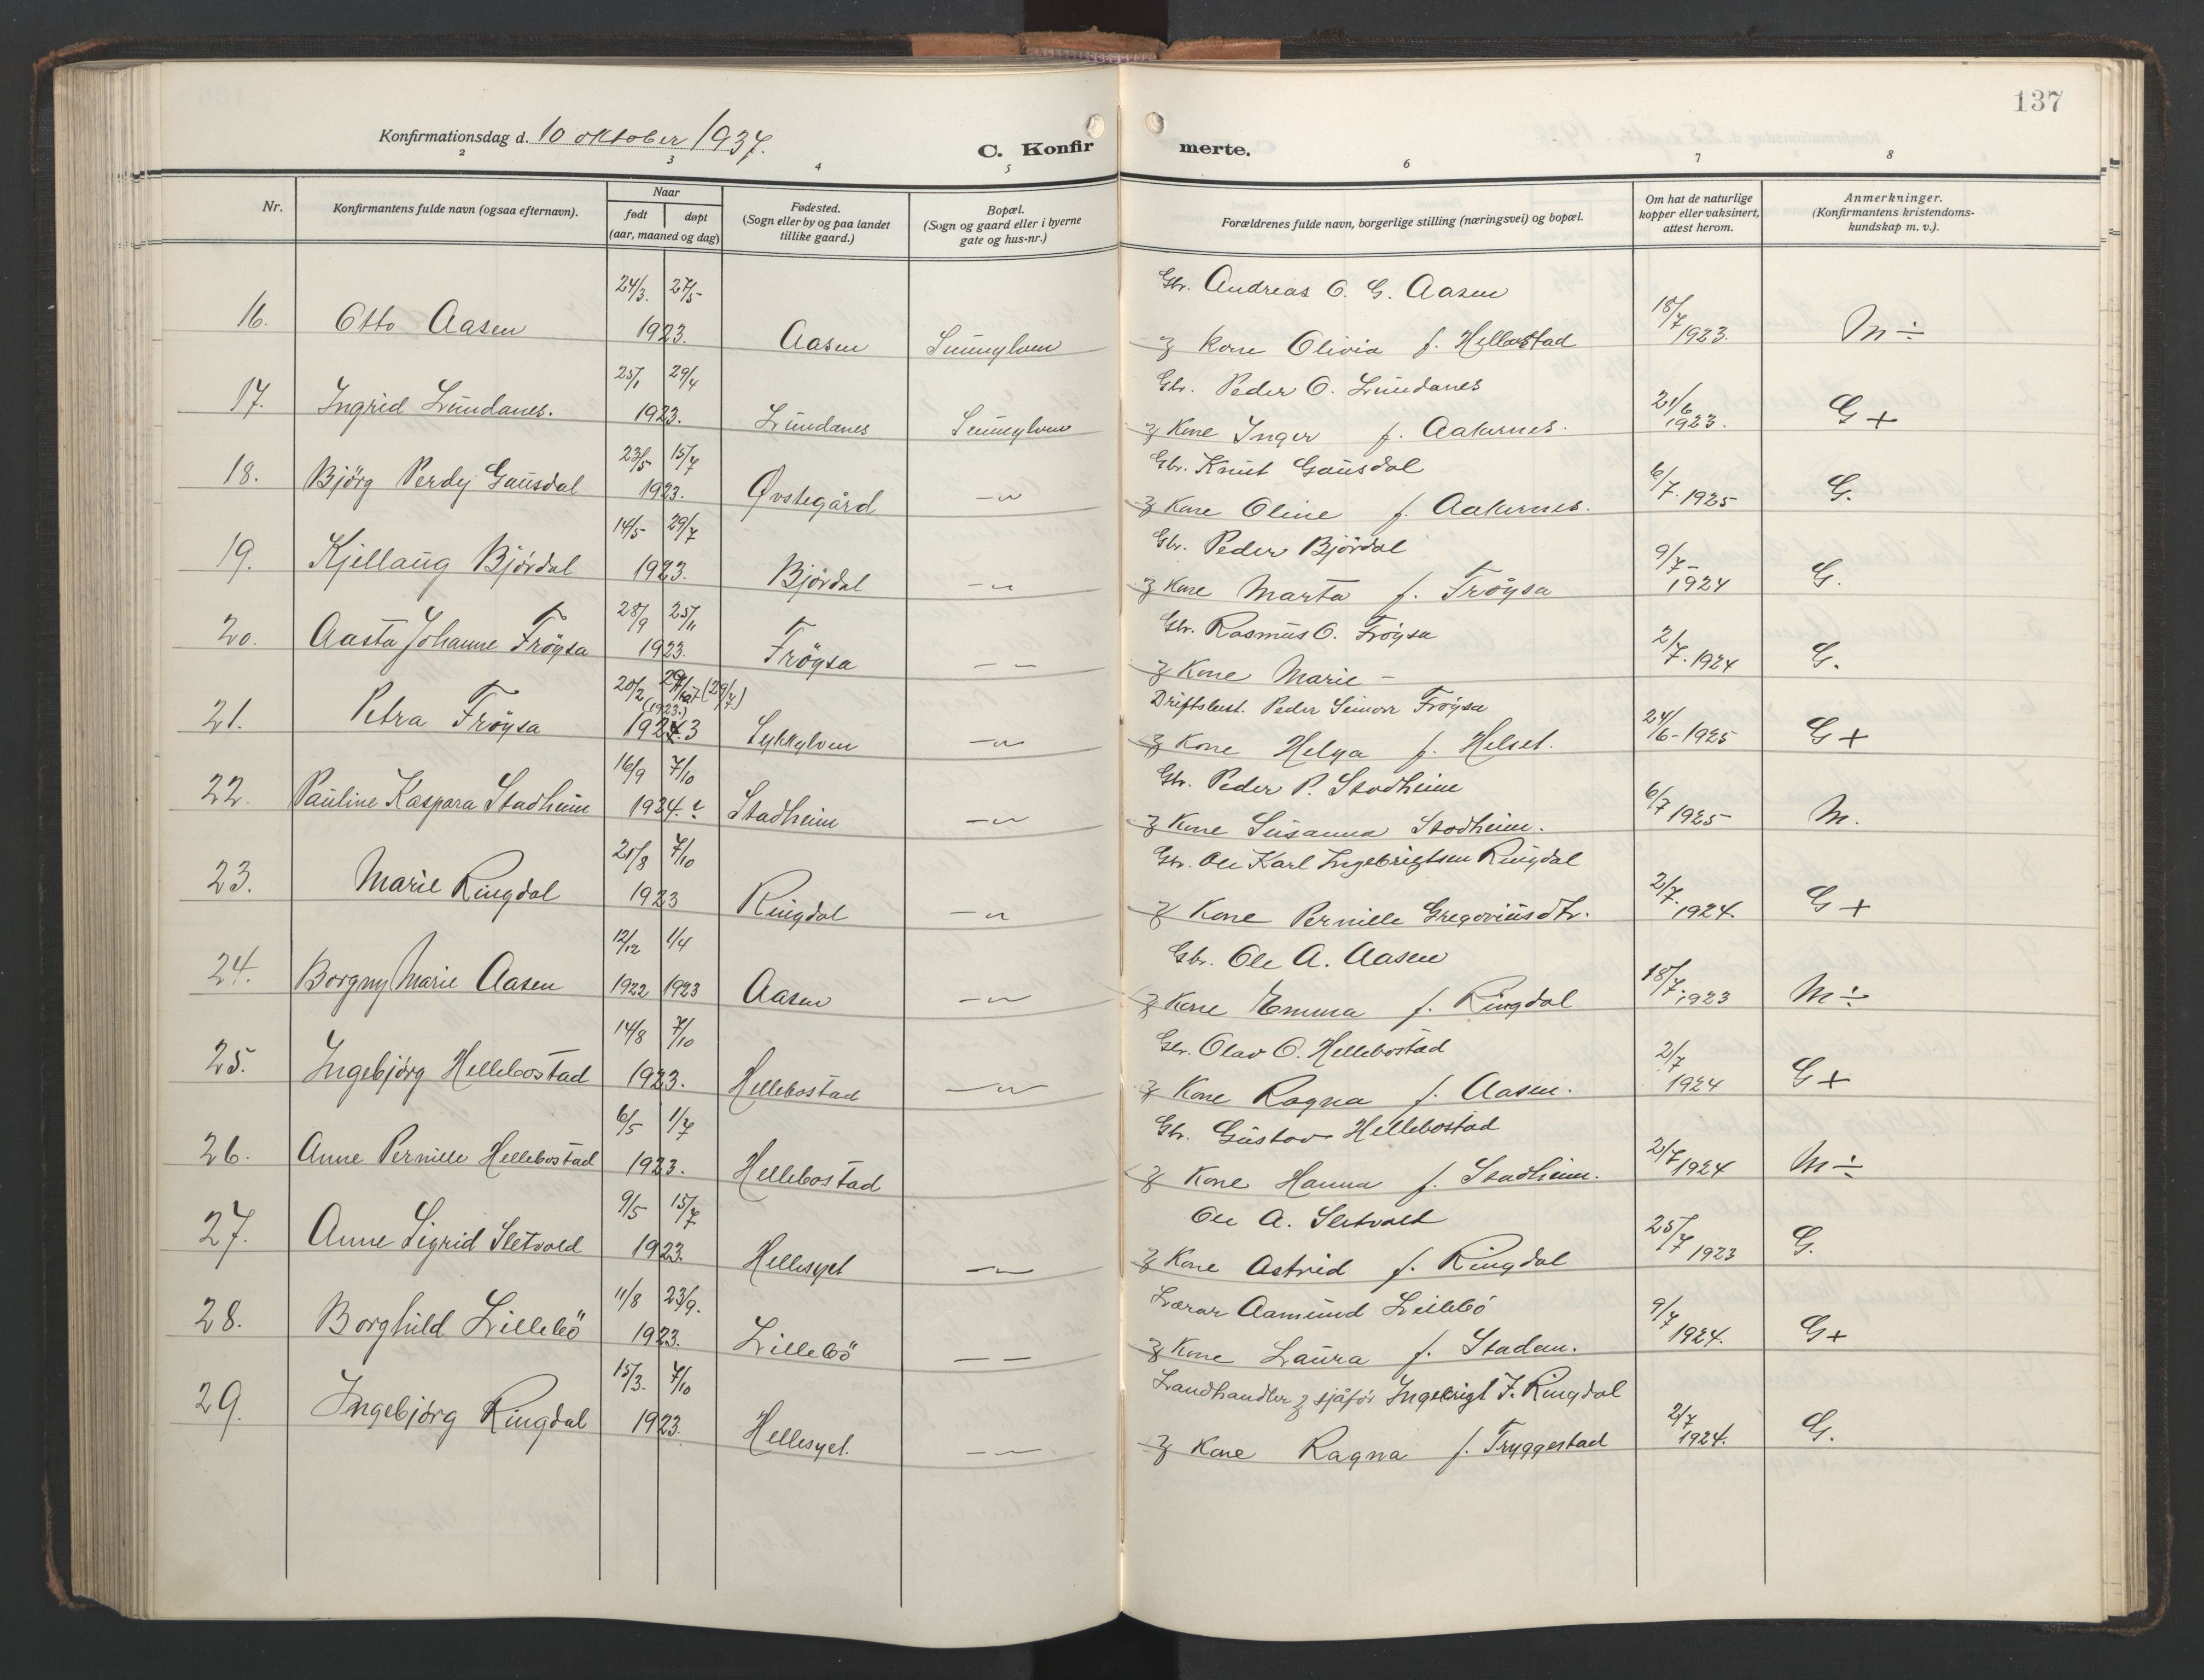 137
Konfirmationsdag d. 10 oktober 1937.
C. Konfirmerte.
2 3 4 5 6 7 8
Nr.
Konfirmantens fulde navn (ogsaa efternavn).
Naar
født døpt
(aar, maaned og dag)
Fødested.
(Sogn eller by og paa landet
tillike gaard.)
Bopæl.
(Sogn og gaard eller i byerne
gate og hus-nr.)
Forældrenes fulde navn, borgerlige stilling (næringsvei) og bopæl.
Om hat de naturlige
kopper eller vaksinert,
attest herom.
Anmerkninger.
(Konfirmantens kristendoms-
kundskap m. v.).
24/3. 27/5 Gbr. Andreas O. G. Aasen
16. Otto Aasen 1923. Aasen Sunnylven & Kone Olivia f. Hellebostad 18/7 1923. M ÷
25/1 29/4 Gbr. Peder O. Lundanes
17. Ingrid Lundanes. 1923. Lundanes Sunnylven & Kone Inger f. Aakernes. 21/6 1923. G +
23/5 15/7 Gbr. Knut Gausdal
18. Bjørg Perdy Gausdal 1923. Øvstegård -"- & Kone Oline f. Aakernes. 6/7. 1925 G.
14/5 29/7 Gbr. Peder Bjørdal
19. Kjellaug Bjørdal 1923. Bjørdal -"- & Kone Marta f. Frøysa 9/7- 1924 G.
28/9 25/11 Gbr. Rasmus O. Frøysa
20. Aasta Johanne Frøysa 1923. Frøysa - - & Kone Marie - 2/7. 1924 G.
20/2 (29/7) Driftsbest. Peder Simon Frøysa
(1923.)
21. Petra Frøysa 1924.3 Sykkylven -"- & Kone Helga f. Helset. 24/6-1925 G +
16/9 7/10 Gbr. Peder P. Stadheim
22. Pauline Kaspara Stadheim 1924. Stadheim -"- & Kone Susanna Stadheim. 6/7 1925 M.
25/8 7/10 Gbr. Ole Karl Ingebrigtsen Ringdal
23. Marie Ringdal 1923 Ringdal -"- & Kone Pernille Gregoriusdtr. 2/7. 1924. G +
12/12 1/4 Gbr. Ole A. Aasen
24. Borgny Marie Aasen 1922 1923 Aasen -"- & Kone Emma f. Ringdal 18/7. 1923 M ÷
14/8 7/10 Gbr. Olav O. Hellebostad
25. Ingebjørg Hellebostad 1923. Hellebostad -"- & Kone Ragna f. Aasen. 2/7 1924 G +
6/5 1/7 Gbr. Gustav Hellebostad
26. Anne Pernille Hellebostad 1923. Hellebostad & Kone Hanna f. Stadheim. 2/7 1924 M ÷
9/5 15/7 Ole A. Sletvold
27. Anne Sigrid Sletvold 1923. Hellesylt -"- & Kone Astrid f. Ringdal 25/7 1923 G.
11/8 23/9. Lærar Aamund Lillebö
28. Borghild Lillebö 1923. Lillebö - - & Kone Laura f. Stadem. 9/7 1924. G +
15/3. 7/10 Landhandler & sjåfør Ingebrigt J. Ringdal
29. Ingebjørg Ringdal 1923. Hellesylt. -"- & Kone Ragna f. Tryggestad 2/7 1924. G.